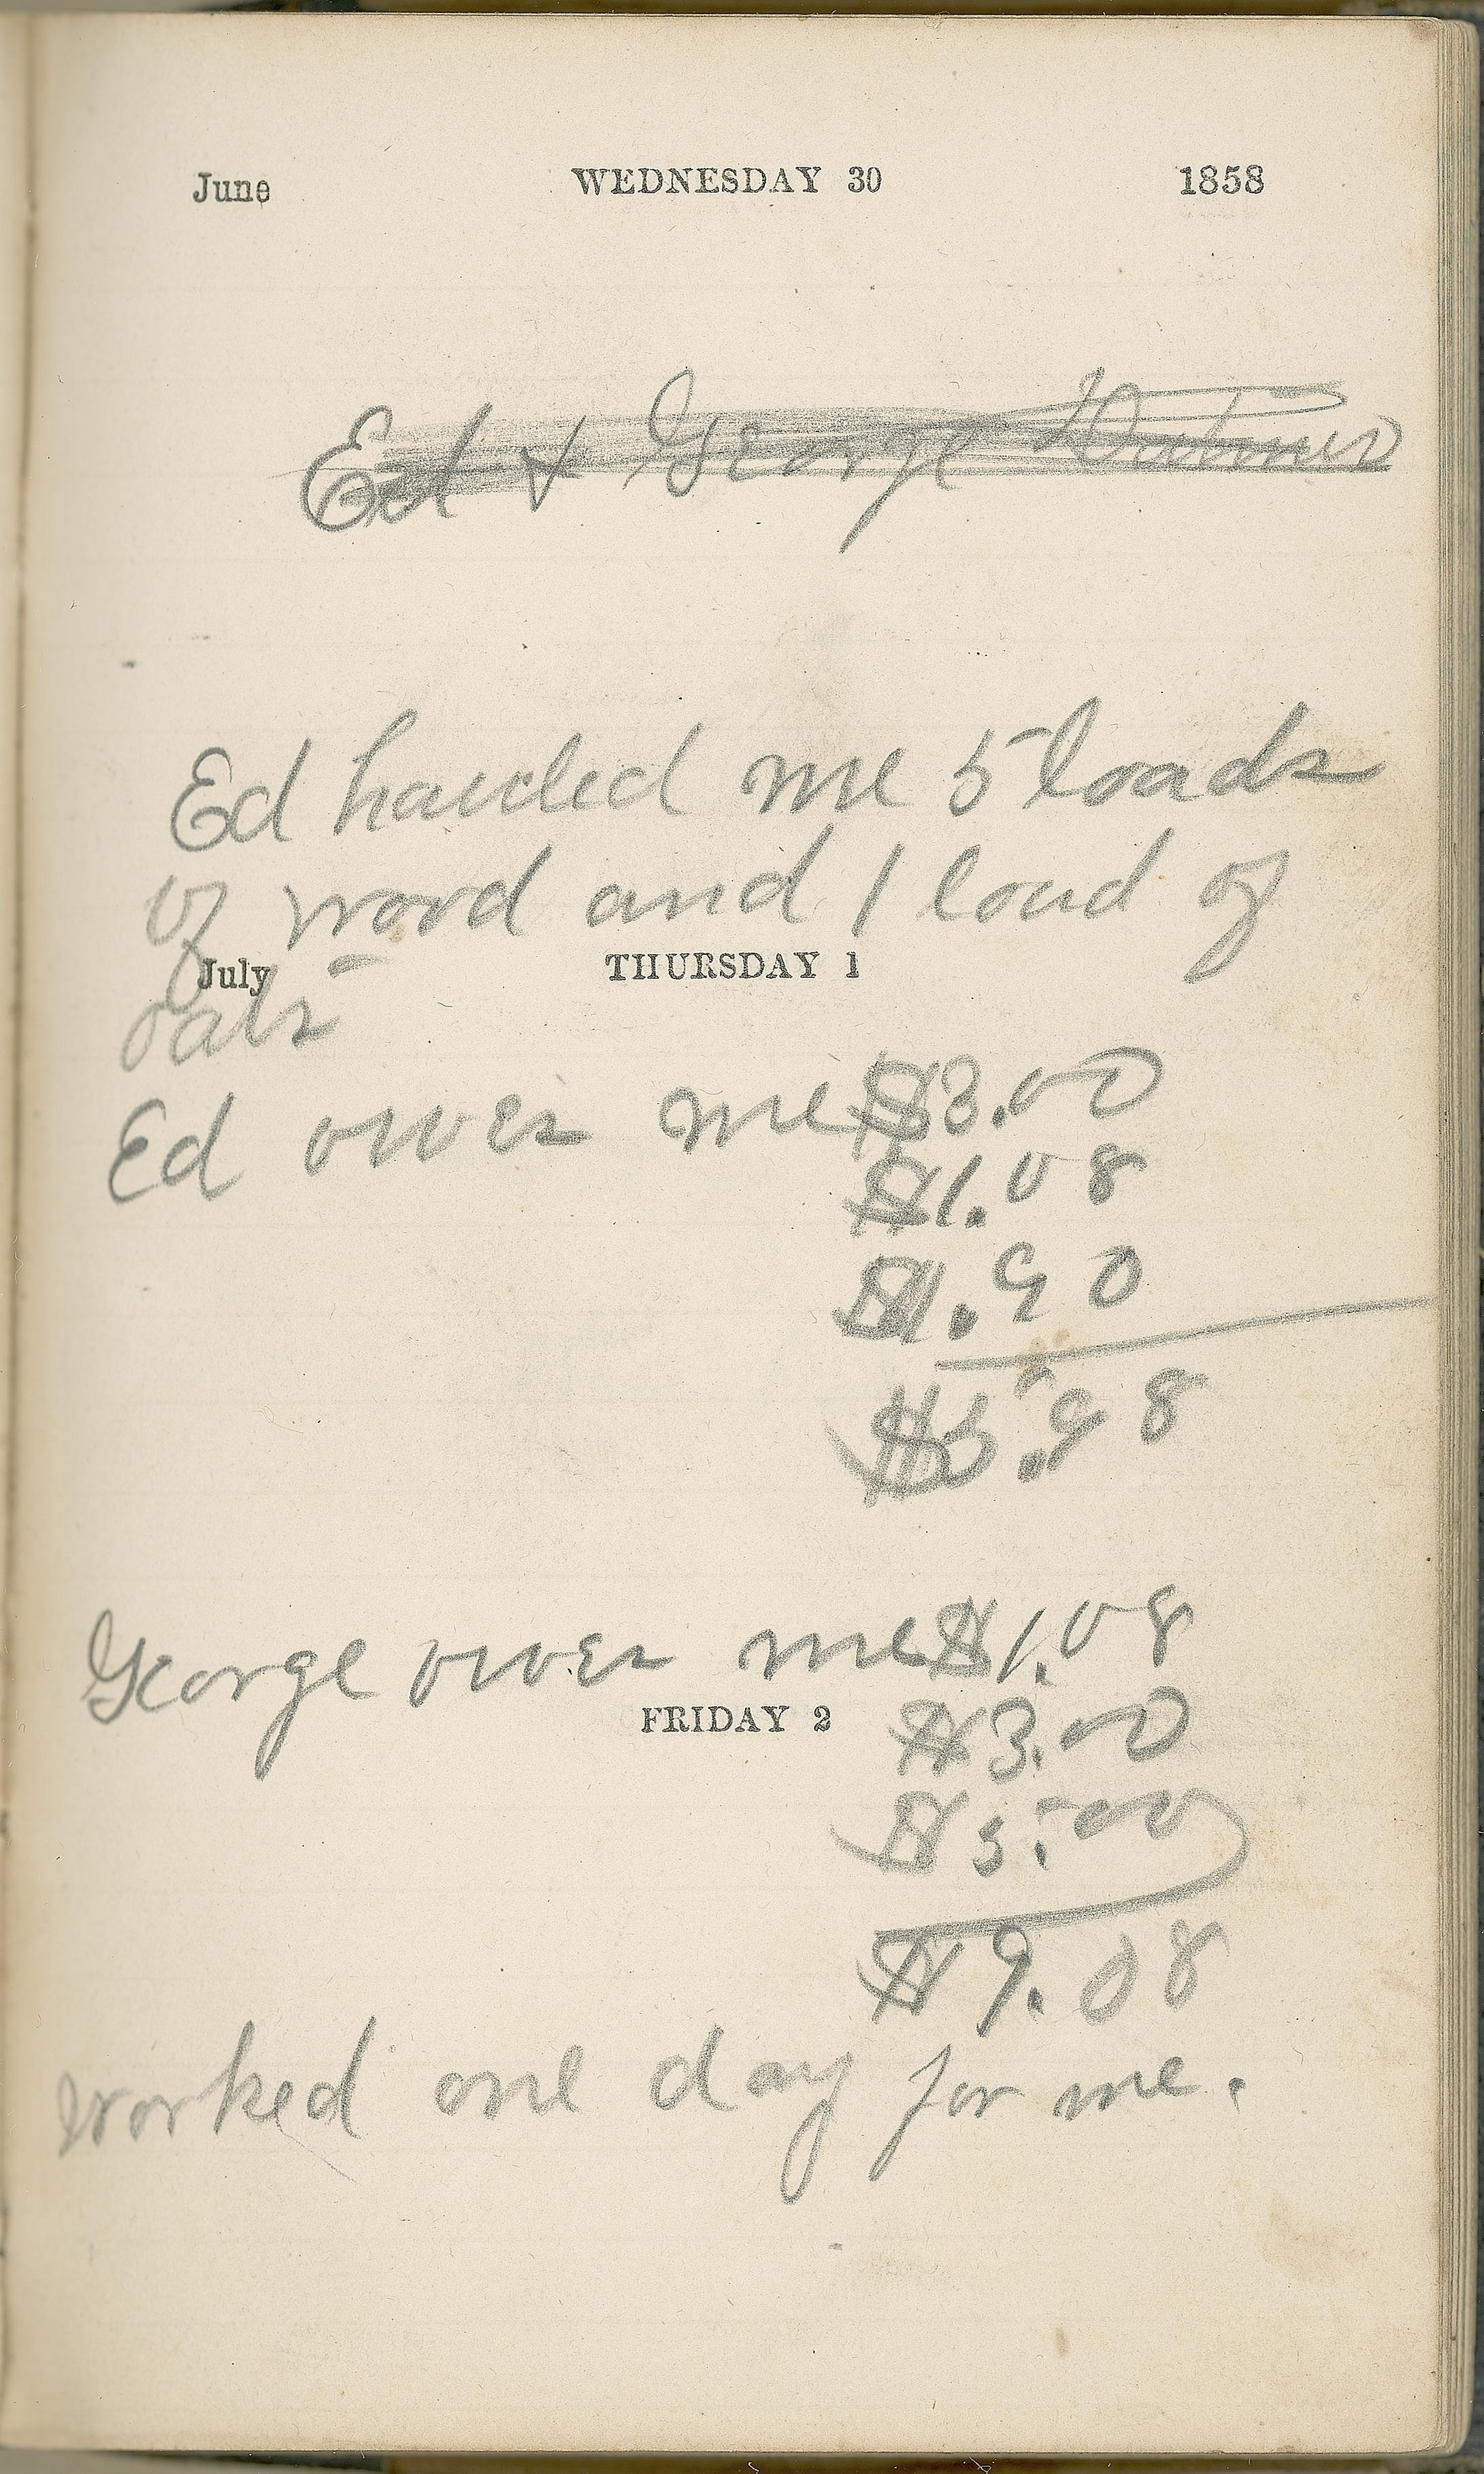 June WEDNESDAY 30 1858
Ed & George
Ed hauled me 5 loads
of wood and 1 load of
July THURSDAY 1
oats
Ed owes me $3.00
$1.08
$1.90
$5.98
George owes me $1.08
FRIDAY 2 $3.00
$5.00
$9.08
worked one day for me.